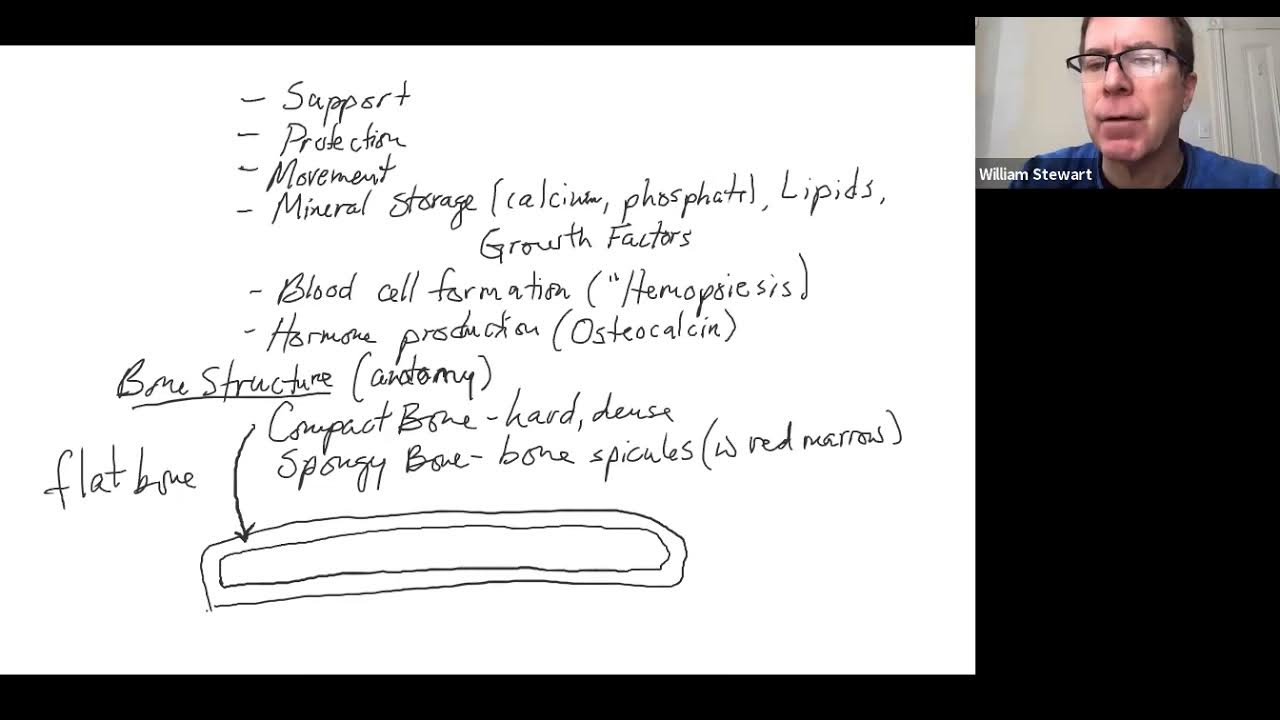 - Support
- Protection
- Movement
- Mineral Storage (calcium, phosphate), Lipids,
Growth Factors
- Blood cell formation ("Hemopoiesis)
- Hormone production (Osteocalcin)
Bone Structure (anatomy)
Compact Bone - hard, dense
Spongy Bone - bone spicules (w red marrow)
flat bone
William Stewart